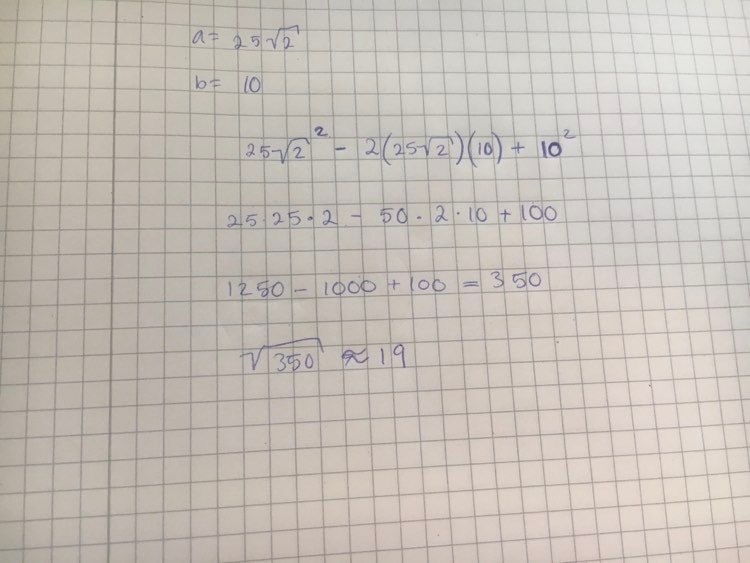 a= 25√2
b= 10
25√2² - 2(25√2)(10) + 10²
25 25·2 - 50·2·10 + 100
1250 - 1000 + 100 = 350
√350 ≈ 19